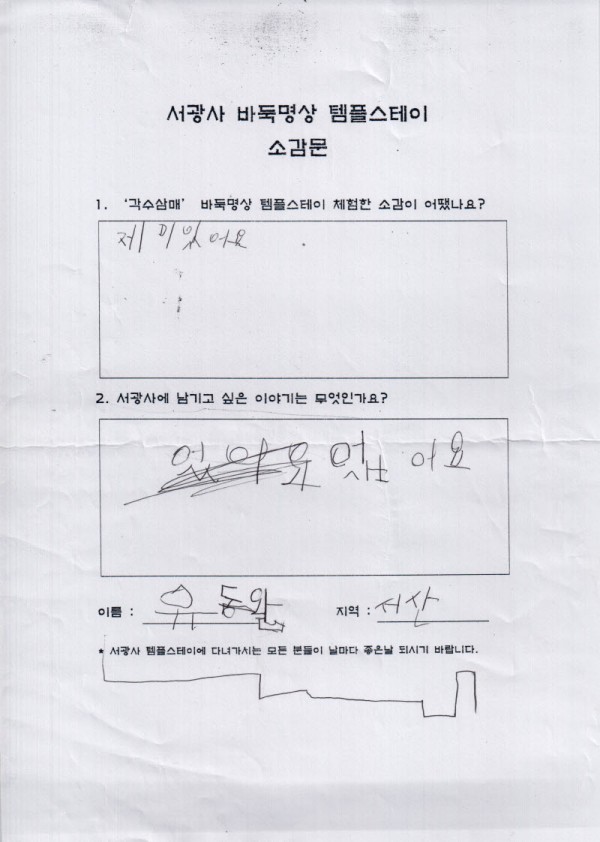 서광사 바둑명상 템플스테이
소감문
1. '각수삼매' 바둑명상 템플스테이 체험한 소감이 어땠나요?
제미있어요
2. 서광사에 남기고 싶은 이야기는 무엇인가요?
없어요 없어요
이름 : 유동완 지역 : 서산
* 서광사 템플스테이에 다녀가시는 모든 분들이 날마다 좋은날 되시기 바랍니다.